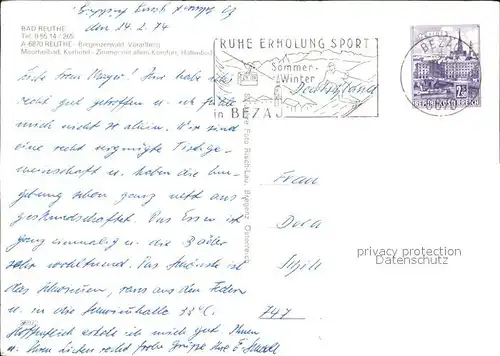 BAD REUTHE
Tel. 0 55 14 / 265
A-6870 REUTHE - Bregenzerwald, Vorarlberg
Moorheilbad, Kurhotel - Zimmer mit allem Komfort, Hallenbad
den 24. 2. 74
RUHE ERHOLUNG SPORT
Sommer-
Winter
in BEZAU
Deutschland
BEZAU
REPUBLIK ÖSTERREICH
Liebe Frau Mayer! Hier habe ich's
recht gut getroffen u. ich fühle
mich nicht so allein. Wir sind
eine recht vergnügte Tischge-
meinschaft u. haben die Um-
gebung schon ganz nett aus-
gekundschaftet. Das Essen ist
ganz einmalig u. die Bäder
sehr wohltuend. Das Schönste ist
das Schwimmen, raus aus den Federn
u. in die Schwimmhalle 33°C.
Hoffentlich erhole ich mich gut. Ihnen
u. Ihren Lieben recht frohe Grüsse Ihre E.
Foto Risch-Lau, Bregenz, Österreich
Frau
Dora
747
privacy protection
Datenschutz